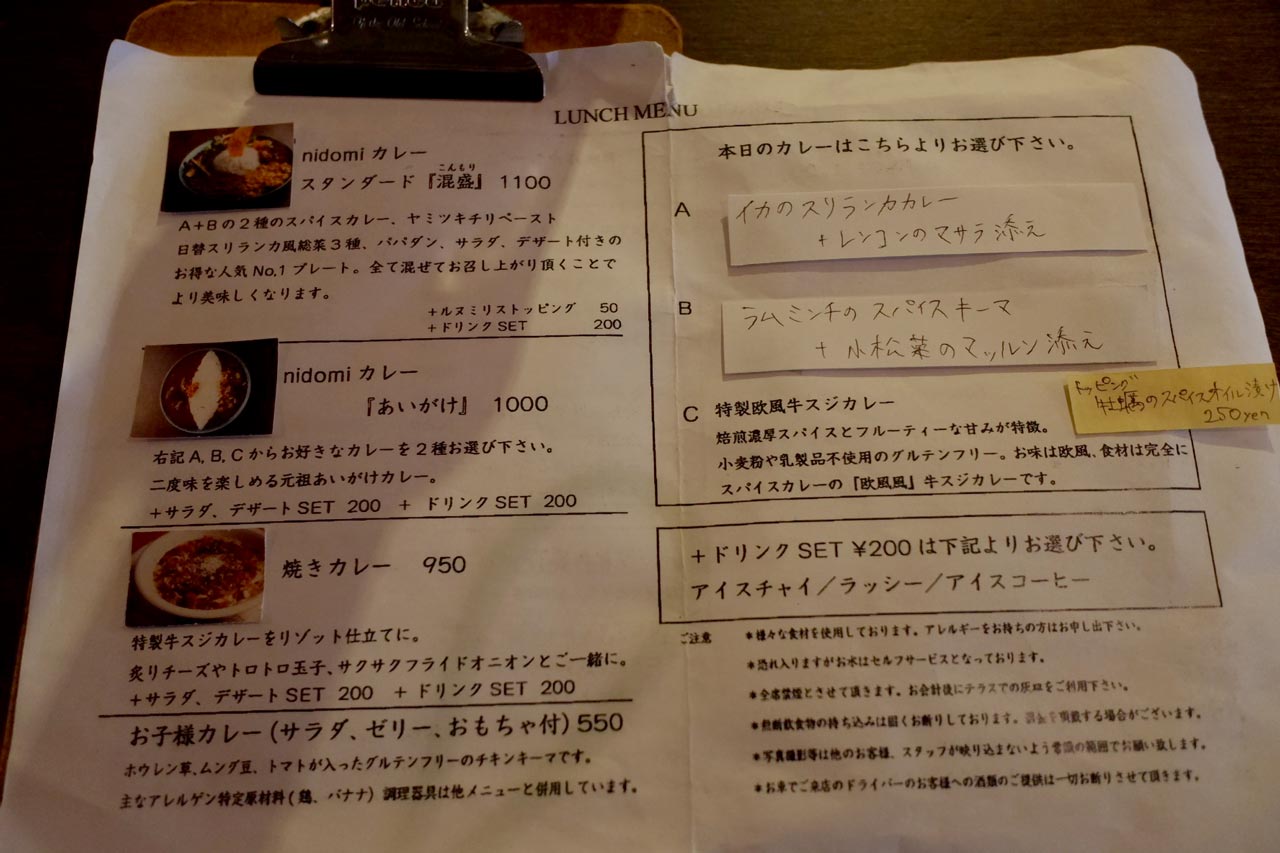 Of the Old School
LUNCH MENU
nidomi カレー
こんもり
スタンダード『混盛』 1100
A+Bの2種のスパイスカレー、ヤミツキチリペースト
日替スリランカ風総菜3種、パパダン、サラダ、デザート付きの
お得な人気 No,1 プレート。全て混ぜてお召し上がり頂くことで
より美味しくなります。
+ルヌミリストッピング 50
+ドリンク SET 200
nidomi カレー
『あいがけ』 1000
右記 A, B, C からお好きなカレーを2種お選び下さい。
二度味を楽しめる元祖あいがけカレー。
+サラダ、デザート SET 200 + ドリンク SET 200
焼きカレー 950
特製牛スジカレーをリゾット仕立てに。
炙りチーズやトロトロ玉子、サクサクフライドオニオンとご一緒に。
+サラダ、デザート SET 200 + ドリンク SET 200
お子様カレー (サラダ、ゼリー、おもちゃ付) 550
ホウレン草、ムング豆、トマトが入ったグルテンフリーのチキンキーマです。
主なアレルゲン特定原材料 (鶏、バナナ) 調理器具は他メニューと併用しています。
本日のカレーはこちらよりお選び下さい。
A イカのスリランカカレー
+レンコンのマサラ添え
B ラムミンチのスパイスキーマ
+ 小松菜のマッルン添え
トッピング
牡蠣のスパイスオイル漬け
250yen
C 特製欧風牛スジカレー
焙煎濃厚スパイスとフルーティーな甘みが特徴。
小麦粉や乳製品不使用のグルテンフリー。お味は欧風、食材は完全に
スパイスカレーの「欧風風」牛スジカレーです。
+ドリンク SET ¥200 は下記よりお選び下さい。
アイスチャイ/ラッシー/アイスコーヒー
ご注意 *様々な食材を使用しております。アレルギーをお持ちの方はお申し出下さい。
*恐れ入りますがお水はセルフサービスとなっております。
*全席禁煙とさせて頂きます。お会計後にテラスでの灰皿をご利用下さい。
*無断飲食物の持ち込みは固くお断りしております。罰金を頂戴する場合がございます。
*写真撮影等は他のお客様、スタッフが映り込まないよう常識の範囲でお願い致します。
*お車でご来店のドライバーのお客様への酒類のご提供は一切お断りさせて頂きます。